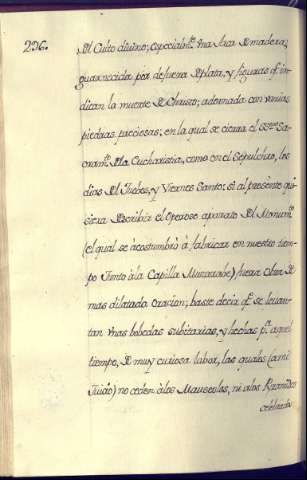 236.
del Culto divino; especialm.te vna Arca de madera,
guarnecida por defuera de plata, y figuras q.e in-
dican la muerte de Christo; adornada con varias
piedras preciosas; en la qual se cierra el SS.mo Sa-
cram.to de la Eucharistia, como en el Sepulchro, los
dias de el Jueves, y Viernes Santo: si al presente qui-
siera describir el operoso aparato de el Monum.to
(el qual se acostumbrò à fabricar en nuestro tiem-
po junto àla Capilla Muzarabe) fuera Obra de
mas dilatada oracion; baste decir q.e se levan-
tan vnas bobedas subitarias, y hechas p.a aquel
tiempo, de muy curiosa labor, las quales (à mi
Juicio) no ceden àlos Mauseolos, ni alos Piramides
celebrados